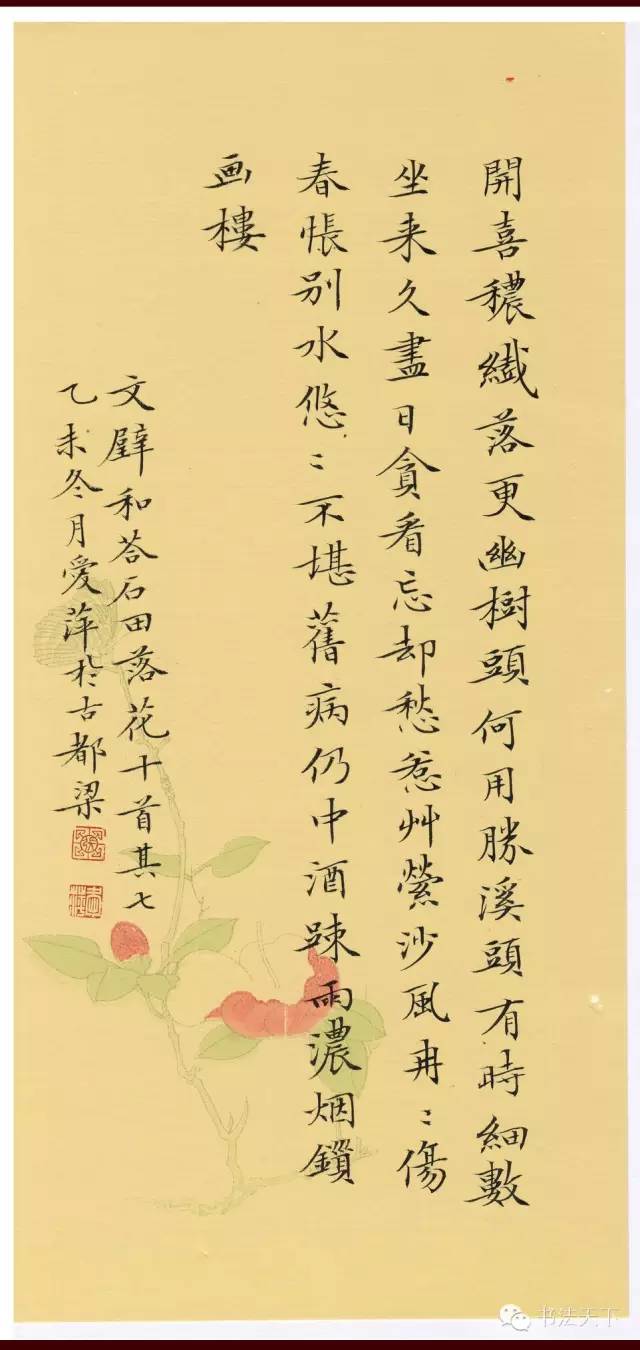 開喜穠纖落更幽樹頭何用勝溪頭有時細數
坐来久盡日貪看忘却愁惹艸縈沙風冉〻傷
春悵别水悠〻不堪舊病仍中酒踈雨濃烟鎻
画樓
文壁和荅石田落花十首其七
乙未冬月愛萍於古都梁
书法天下